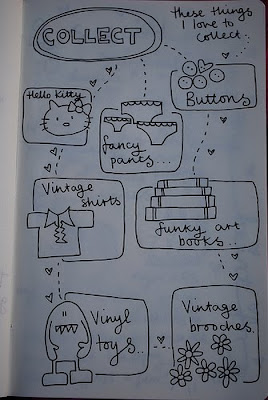 COLLECT
these things
I love to
collect:
Hello Kitty
Buttons
fancy
pants...
Vintage
shirts
funky art
books..
Vinyl
toys..
Vintage
brooches.